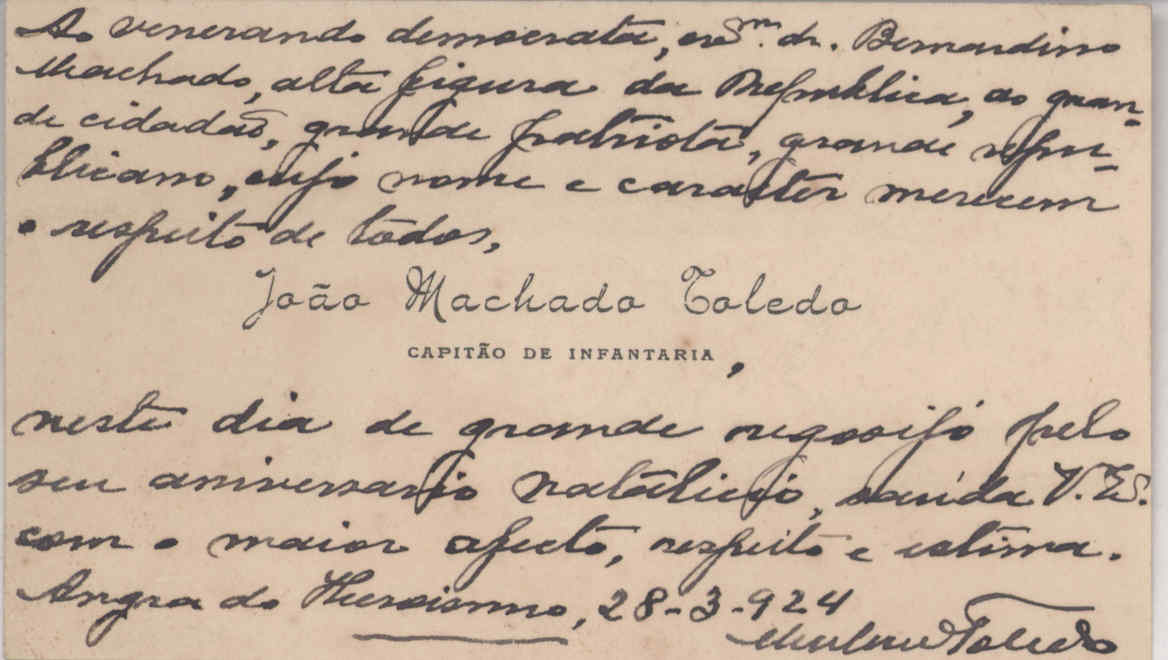 Ao venerando democrata, exmº. dr. Bernardino
Machado, alta figura da Republica, ao gran-
de cidadão, grande patriota, grande repu-
blicano, cujo nome e caracter merecem
o respeito de todos,
João Machado Toledo
CAPITÃO DE INFANTARIA,
neste dia de grande regosijo pelo
seu aniversario natalicio, saúda V. Ex.
com o maior afecto, respeito e estima.
Angra do Heroismo, 28-3-924
Toledo